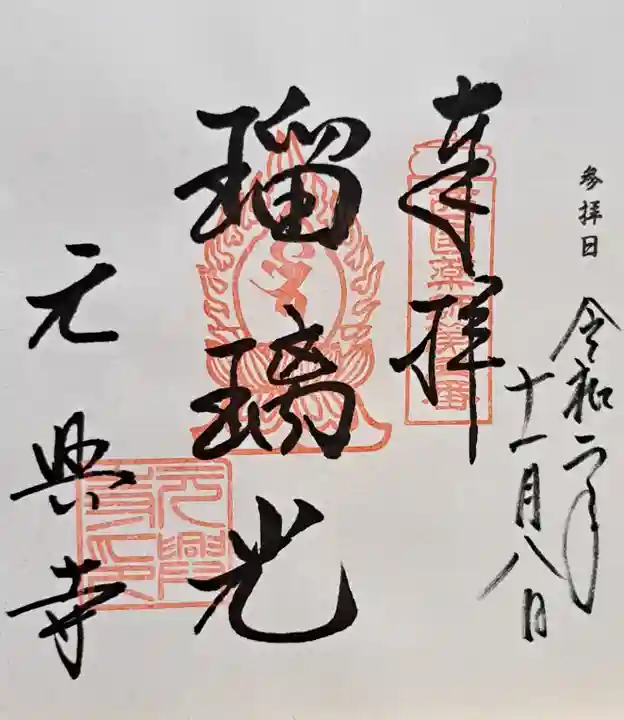 参拝日 令和二年
十一月八日
奉拝
瑠璃光
元興寺
元興寺印